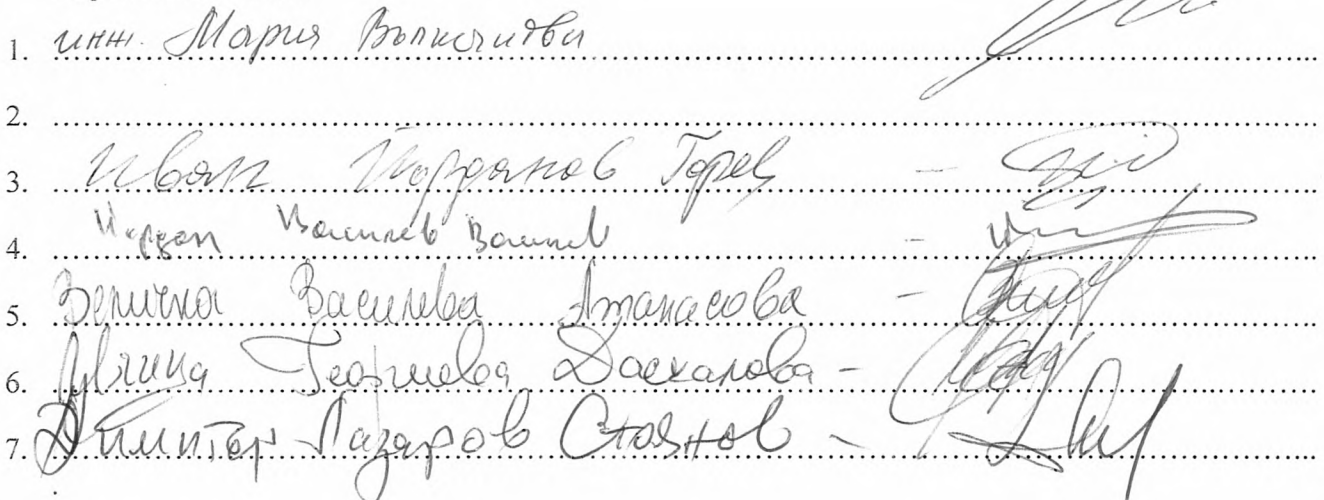 1. инж. Мария Вълканова
2.
3. Иван Йорданов Горев -
4. Йордан Василев Василев -
5. Величка Василева Атанасова -
6. Георгиева Даскалова -
7. Димитър Лазаров Стоянов -